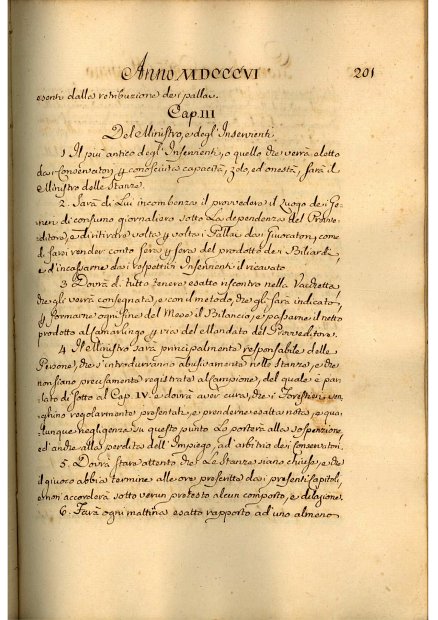 Anno MDCCCVI
201
esenti dalla retribuzione dei palla.
Cap. III
Del Ministro, e degl'Inservienti.
1 Il più antico degl'Inservienti, o quello che verrà eletto
dai Conservatori p conosciuta capacità, zelo, ed onestà, sarà il
Ministro delle Stanze.
2. Sarà di Lui incombenza il provvedere il Luogo dei Ge-
neri di consumo giornaliero sotto La dependenza del Provve-
ditore, e di ritirare volta p volta i Pallai dai Giuocatori, come
di farsi render conto sera p sera del prodotto dei Biliardi,
e d'incassarne dai respettivi Inservienti il ricavato
3 Dovrà di tutto tenere esatto riscontro nella Vacchetta
che gli verrà consegnata, e con il metodo, che gli sarà indicato,
p formarne ogni fine del Mese il Bilancio, e passarne il netto
prodotto al Camarlingo p via del Mandato del Provveditore.
4 Il Ministro sarà principalmente responsabile delle
Persone, che s'introdurranno abusivamente nelle Stanze, e che
non siano precisamente registrate al Campione, del quale è par-
lato di sotto al Cap. IV. e dovrà aver cura, che i Forestieri ven-
ghino regolarmente presentati, e prenderne esatta nota, e qua-
lunque negligenza su questo punto Lo porterà alla sospenzione,
ed anche alla perdita dell'Impiego, ad'arbitrio dei Conservatori.
5. Dovrà stare attento che Le Stanze siano chiuse, e che
il giuoco abbia termine alle ore prescritte dai presenti Capitoli,
e non accorderà sotto verun pretesto alcun comporto, e dilazione.
6. Farà ogni mattina esatto rapporto ad'uno almeno